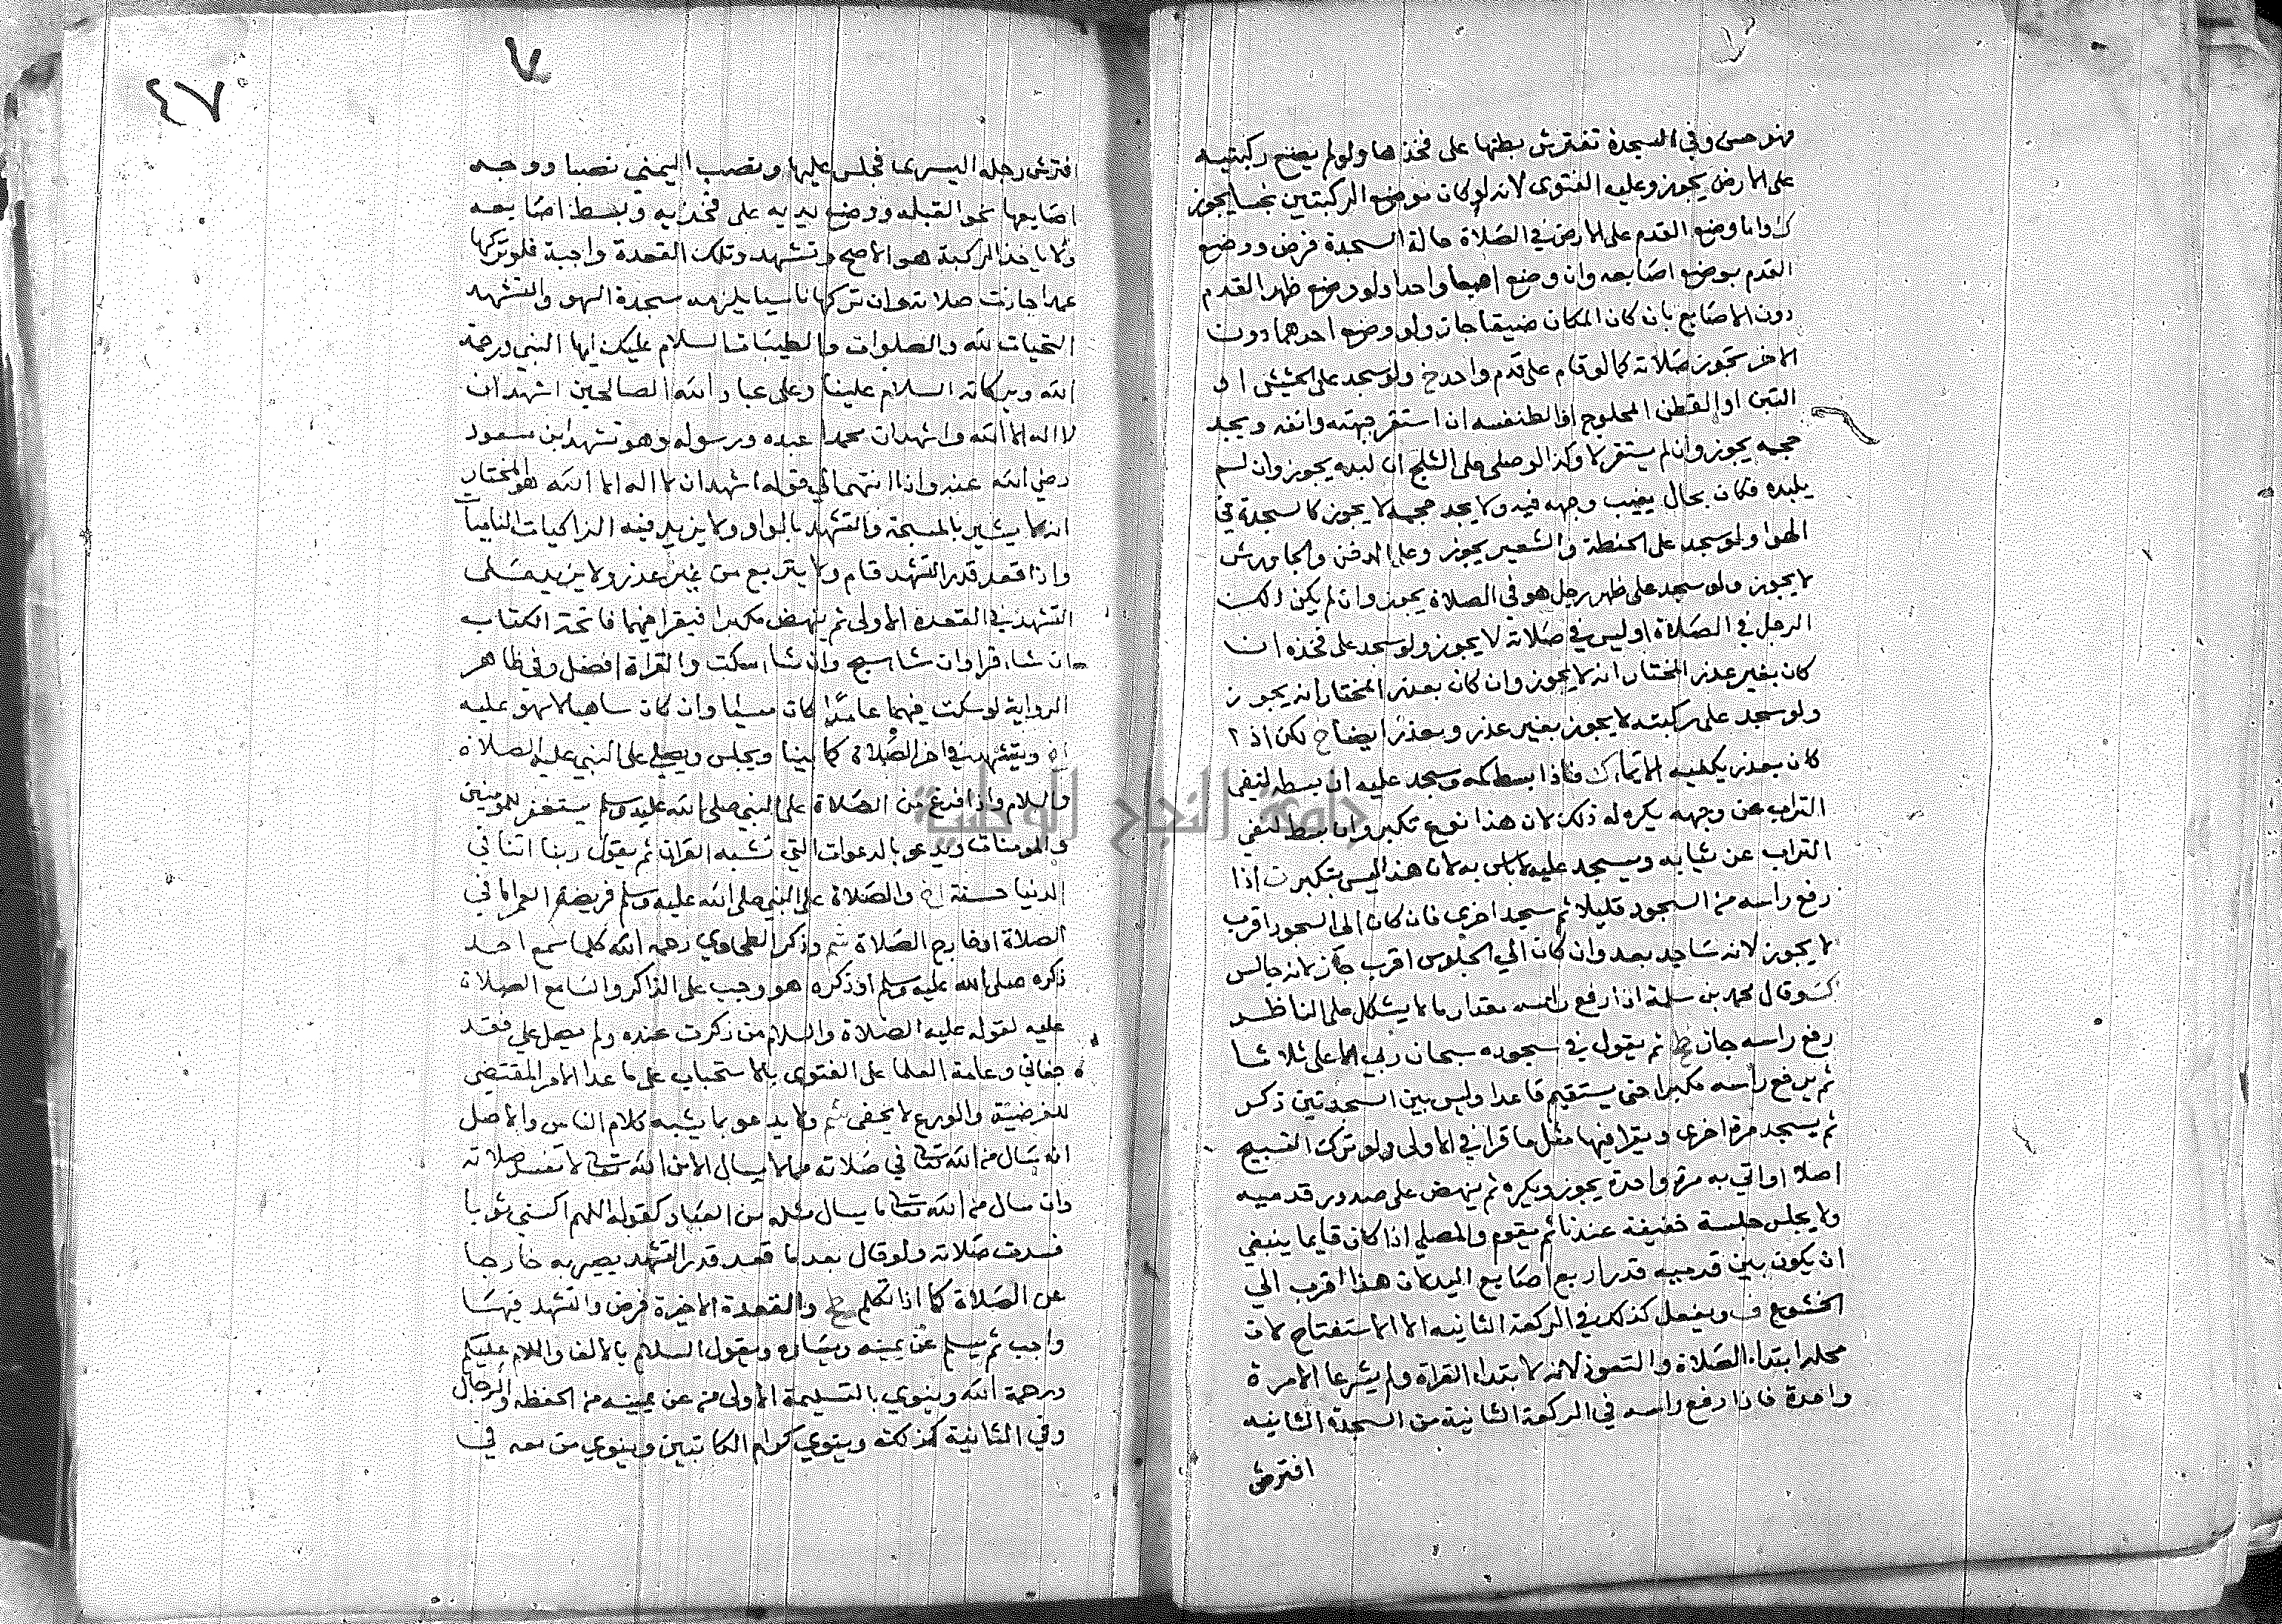 فهو حسن وفي السجدة تفترش بطنها على فخذها ولو لم يضع ركبتيه
على الارض يجوز وعليه الفتوى لانه لو كان موضع الركبتين نجسا يجوز
ك واما وضع القدم على الارض في الصلاة حالة السجدة فرض ووضع
القدم بوضع اصابعه وان وضع اصبعا واحدا ولو وضع ظهر القدم
دون الاصابع بان كان المكان ضيقا جاز ولو وضع احدهما دون
الاخر تجوز صلاته كما لو قام على قدم واحد خ ولو سجد على الحشيش او
التبن او القطن المحلوج او الطنفسه ان استقر جبهته وانفه ويجد
حجمه يجوز وان لم يستقر لا وكذا لو صلى على الثلج ان لبده يجوز وان لم
يلبده فكان بحال يغيب وجهه فيه ولا يجد حجمه لا يجوز كالسجدة في
الهوا ولو سجد على الحنطة والشعير يجوز وعلى الدخن والجاورش
لا يجوز ولو سجد على ظهر رجل هو في الصلاة يجوز وان لم يكن ذلك
الرجل في الصلاة او ليس في صلاته لا يجوز ولو سجد على فخذه ان
كان بغير عذر المختار انه لا يجوز وان كان بعذر المختار انه يجوز
ولو سجد على ركبته لا يجوز بغير عذر وبعذر ايضا خ لكن اذا
كان بعذر يكفيه الايماء ك فاذا بسط كمه وسجد عليه ان بسطه لنفي
التراب عن وجهه يكره له ذلك لان هذا نوع تكبر وان بسط لنفي
التراب عن ثيابه وسجد عليه لا باس به لان هذا ليس بتكبر ت اذا
رفع راسه من السجود قليلا ثم سجد اخرى فان كان الى السجود اقرب
لا يجوز لانه ساجد بعد وان كان الى الجلوس اقرب جاز لانه جالس
وقال محمد بن سلمة اذا رفع راسه مقدار ما لا يشكل على الناظر
رفع راسه جاز ط ثم يقول في سجوده سبحان ربي الاعلى ثلاثا
ثم يرفع راسه مكبرا حتى يستقيم قاعدا وليس بين السجدتين ذكر
ثم يسجد مرة اخرى ويقرا فيها مثل ما قرا في الاولى ولو ترك التسبيح
اصلا او اتي به مرة واحدة يجوز ويكره ثم ينهض على صدور قدميه
ولا يجلس جلسة خفيفة عندنا ثم يقوم والمصلي اذا كان قايما ينبغي
ان يكون بين قدميه قدر اربع اصابع اليد لان هذا اقرب الي
الخشوع ف ويفعل كذلك في الركعة الثانيه الا الاستفتاح لان
محله ابتداء الصلاة والتعوذ لانه لابتداء القراة ولم يشرعا الا مرة
واحدة فاذا رفع راسه في الركعة الثانية من السجدة الثانيه
افترش
٧
٤٧
افترش رجله اليسرى فجلس عليها ونصب اليمني نصبا ووجه
اصابعها نحو القبله ووضع يديه على فخذيه وبسط اصابعه
ولا ياخذ الركبة هو الاصح وتشهد وتلك القعدة واجبة فلو تركها
عمدا جازت صلاته وان تركها ناسيا يلزمه سجدة السهو والتشهد
التحيات لله والصلوات والطيبات السلام عليك ايها النبي ورحمة
الله وبركاته السلام علينا وعلى عباد الله الصالحين اشهد ان
لا اله الا الله واشهد ان محمدا عبده ورسوله وهو تشهد ابن مسعود
رضي الله عنه واذا انتهى الي قوله اشهد ان لا اله الا الله هو المختار
انه لا يشير بالمسبحة والتشهد بالواو ولا يزيد فيه الزاكيات الناميات
واذا قعد قدر التشهد قام ولا يتربع من غير عذر ولا يزيد على
التشهد في القعدة الاولى ثم ينهض مكبرا فيقرا فيهما فاتحة الكتاب
ان شاء قرا وان شا سبح وان شا سكت والقراة افضل وفي ظاهر
الرواية لو سكت فيهما عامدا كان مسيا وان كان ساهيا لا سهو عليه
ويتشهد في اخر الصلاة كما بينا ويجلس ويصلي على النبي عليه الصلاة
والسلام واذا فرغ من الصلاة على النبي صلى الله عليه وسلم يستغفر للمومنين
والمومنات ويدعو بالدعوات التي تشبه القران ثم يقول ربنا اتنا في
الدنيا حسنة والصلاة على النبي صلى الله عليه وسلم فريضة العمر اما في
الصلاة او خارج الصلاة شم وذكر الطحاوي رحمه الله كلما سمع احد
ذكره صلى الله عليه وسلم او ذكره هو وجب على الذاكر والسامع الصلاة
عليه لقوله عليه الصلاة والسلام من ذكرت عنده ولم يصل علي فقد
جفاني وعامة العلما على الفتوى بالاستحباب على ما عدا الامر المقتضى
للفرضية والورع لا يخفى شم ولا يدعو بما يشبه كلام الناس والاصل
انه سال من الله تعالى في صلاته مما لا يسال الا من الله تعالى لا تفسد صلاته
وان سال من الله تعالى ما يسال مثله من العباد كقوله اللهم اكسني ثوبا
فسدت صلاته ولو قال بعد ما قعد قدر التشهد يصير به خارجا
عن الصلاة كما اذا تكلم ط والقعدة الاخيرة فرض والتشهد فيها
واجب ثم يسلم عن يمينه ويساره ويقول السلام بالالف واللام عليكم
ورحمة الله وينوي بالتسليمة الاولى من عن يمينه من الحفظه والرجال
وفي الثانية كذلك وينوي كرام الكاتبين وينوي من معه في
جامعة النجاح الوطنية